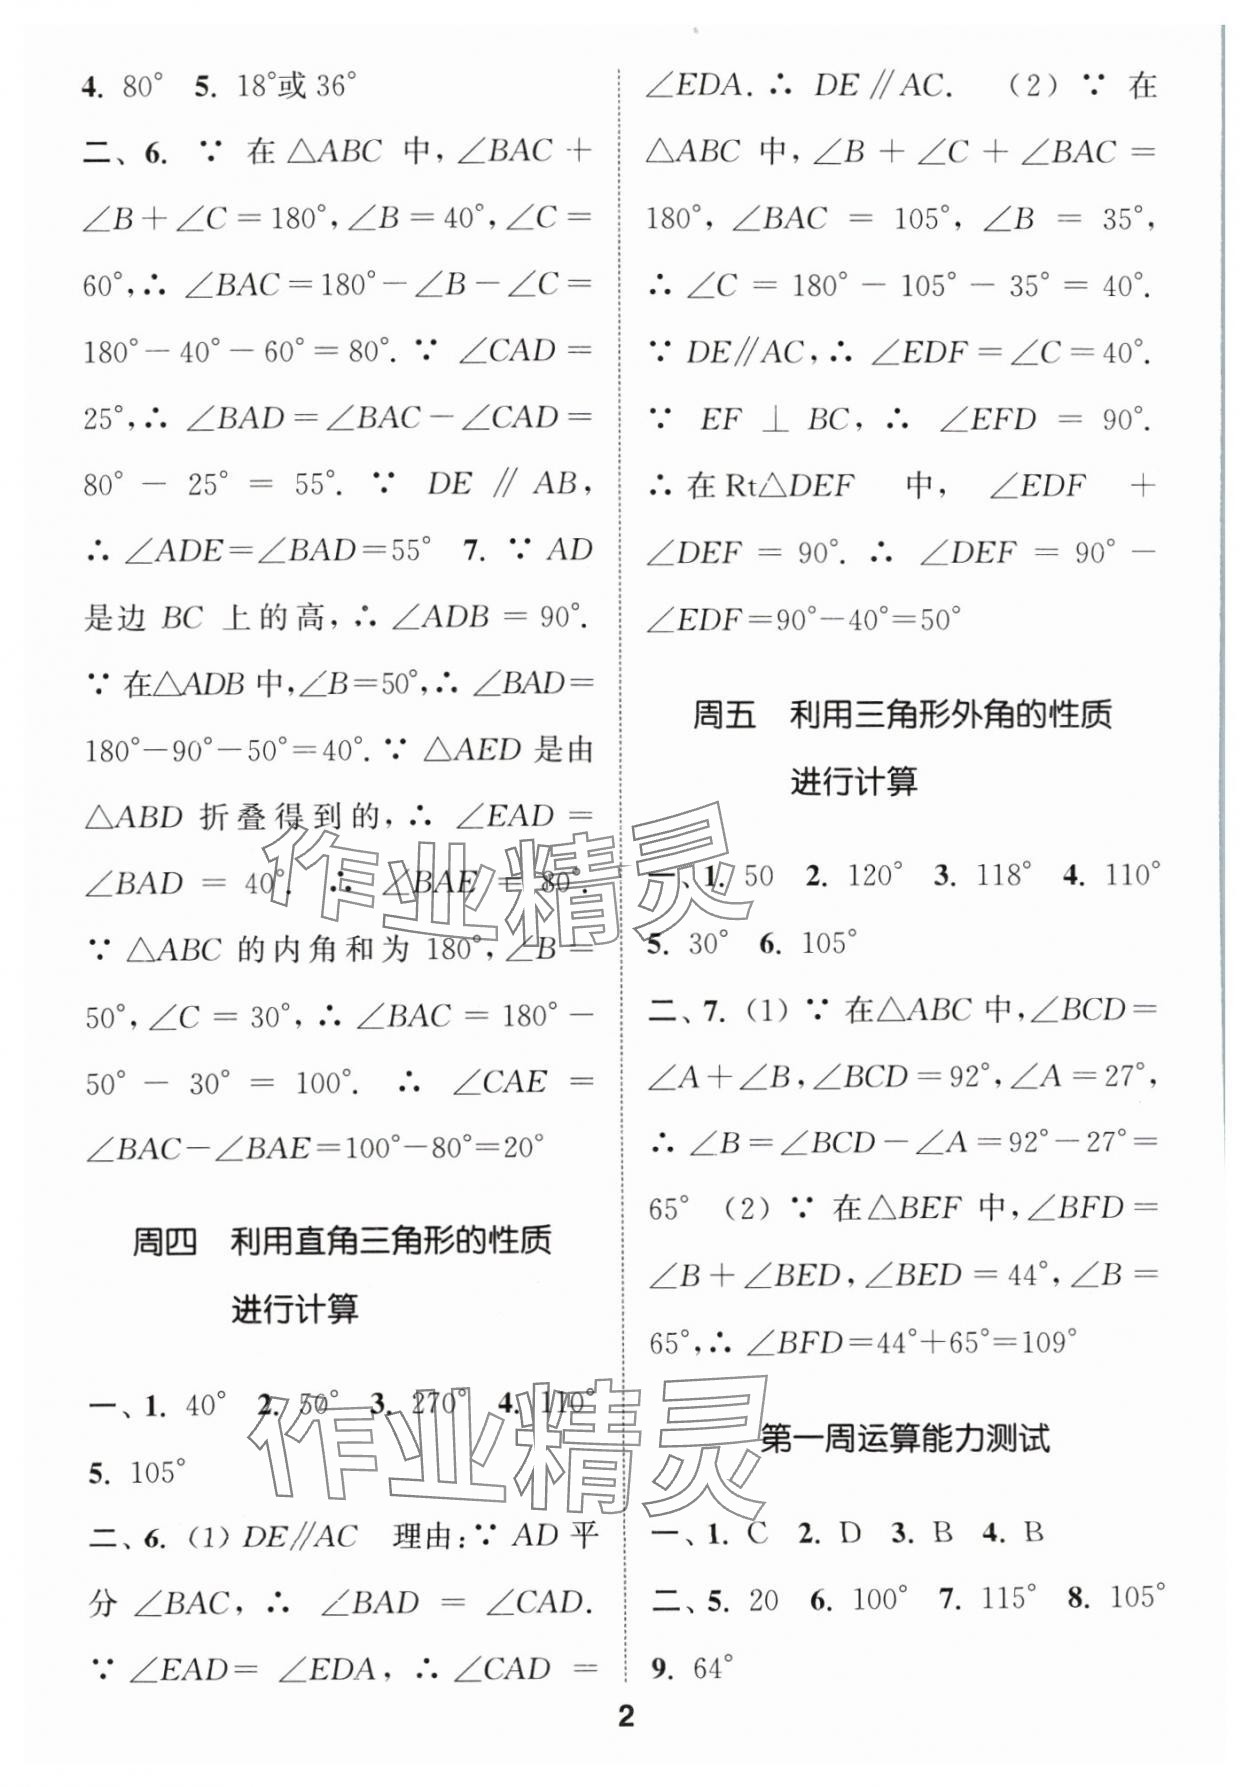 4. 80° 5. 18°或36°
二、6. ∵ 在△ABC 中,∠BAC+
∠B+∠C=180°,∠B=40°,∠C=
60°,∴ ∠BAC=180°-∠B-∠C=
180°-40°-60°=80°. ∵ ∠CAD=
25°,∴ ∠BAD=∠BAC-∠CAD=
80°-25°=55°. ∵ DE∥AB,
∴ ∠ADE=∠BAD=55° 7. ∵ AD
是边 BC 上的高,∴ ∠ADB=90°.
∵ 在△ADB 中,∠B=50°,∴ ∠BAD=
180°-90°-50°=40°. ∵ △AED 是由
△ABD 折叠得到的,∴ ∠EAD=
∠BAD=40°. ∴ ∠BAE=80°.
∵ △ABC 的内角和为 180°,∠B=
50°,∠C=30°,∴ ∠BAC=180°-
50°-30°=100°. ∴ ∠CAE=
∠BAC-∠BAE=100°-80°=20°
周四 利用直角三角形的性质
进行计算
一、1. 40° 2. 50° 3. 270° 4. 110°
5. 105°
二、6. (1) DE∥AC 理由:∵ AD 平
分 ∠BAC,∴ ∠BAD=∠CAD.
∵ ∠EAD=∠EDA,∴ ∠CAD=
∠EDA.∴ DE∥AC. (2) ∵ 在
△ABC 中,∠B+∠C+∠BAC=
180°,∠BAC=105°,∠B=35°,
∴ ∠C=180°-105°-35°=40°.
∵ DE∥AC,∴ ∠EDF=∠C=40°.
∵ EF⊥BC,∴ ∠EFD=90°.
∴ 在Rt△DEF 中,∠EDF+
∠DEF=90°. ∴ ∠DEF=90°-
∠EDF=90°-40°=50°
周五 利用三角形外角的性质
进行计算
一、1. 50 2. 120° 3. 118° 4. 110°
5. 30° 6. 105°
二、7. (1) ∵ 在△ABC 中,∠BCD=
∠A+∠B,∠BCD=92°,∠A=27°,
∴ ∠B=∠BCD-∠A=92°-27°=
65° (2) ∵ 在△BEF 中,∠BFD=
∠B+∠BED,∠BED=44°,∠B=
65°,∴ ∠BFD=44°+65°=109°
第一周运算能力测试
一、1. C 2. D 3. B 4. B
二、5. 20 6. 100° 7. 115° 8. 105°
9. 64°
2
作业精灵
作业精灵